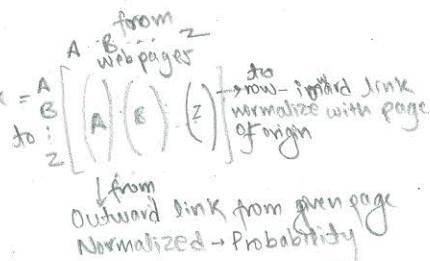 from
A B ... Z
webpages
= A
B
to :
Z
[ (A) (B) .. (Z) ]
to
→ row - inward link
normalize with page
of origin
↓ from
Outward link from given page
Normalized → Probability